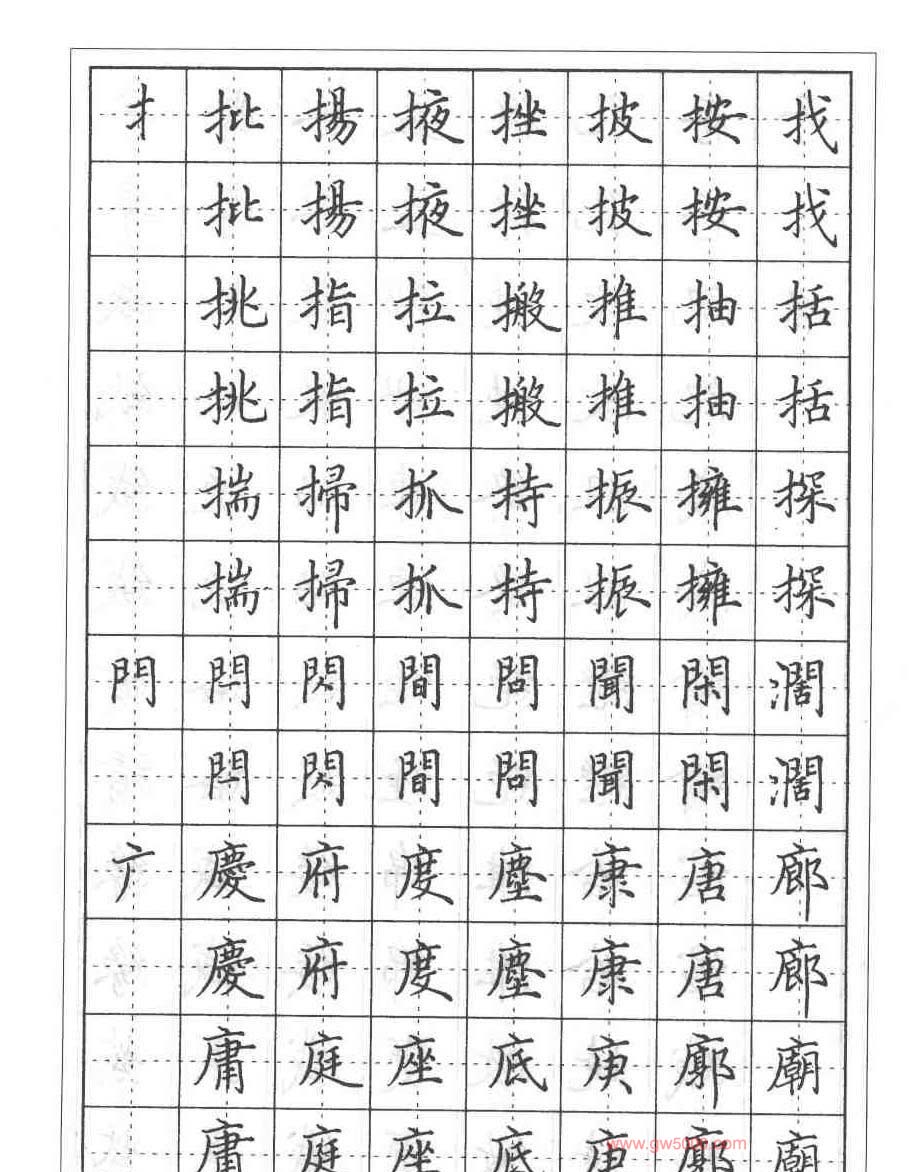 扌 批 揚 掖 挫 披 按 找
批 揚 掖 挫 披 按 找
挑 指 拉 搬 推 抽 括
挑 指 拉 搬 推 抽 括
揣 掃 抓 持 振 擁 探
揣 掃 抓 持 振 擁 探
門 閂 閃 間 問 聞 閑 濶
閂 閃 間 問 聞 閑 濶
广 慶 府 度 塵 康 唐 廊
慶 府 度 塵 康 唐 廊
庸 庭 座 底 庚 廓 廟
庸 庭 座 底 庚 廓 廟